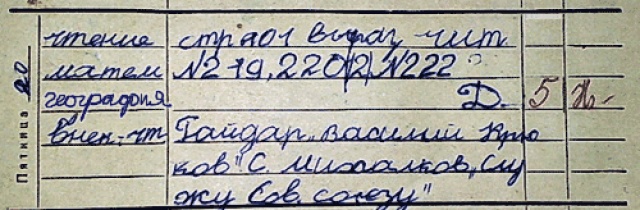 Пятница 20
чтение стр 101 выраз чит
матем №219, 220(2), №222
география Д. 5
внек. чт Гайдар „Василий Крю
ков" С. Михалков „Слу
жу Сов. союзу"